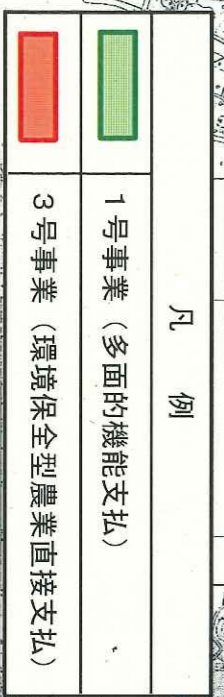 凡 例
1号事業（多面的機能支払）
3号事業（環境保全型農業直接支払）